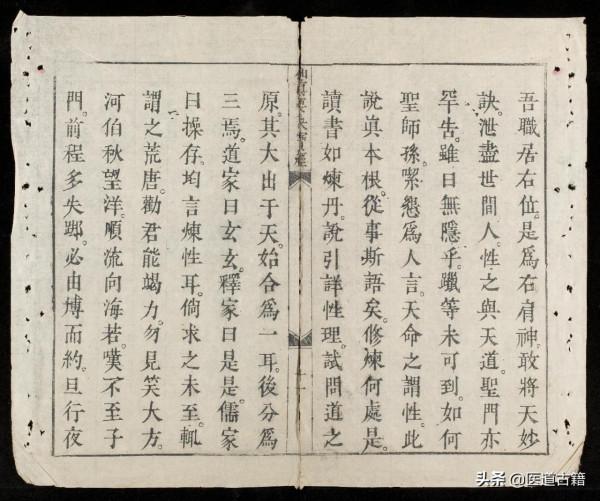 吾職居右位。是爲右肩神。敢將天妙
訣。泄盡世間人。性之與天道。聖門亦
罕告。雖曰無隱乎。躐等未可到。如何
聖師孫。喫懇爲人言。天命之謂性。此
說眞本根。從事斯語矣。修煉何處是。
讀書如煉丹。說引詳性理。試問道之
經
原。其大出于天。始合爲一耳。後分爲
三焉。道家曰玄玄。釋家曰是是。儒家
曰操存。均言煉性耳。倘求之未至。輒
謂之荒唐。勸君能竭力。勿見笑大方。
河伯秋望洋。順流向海若。嘆不至子
門。前程多失踋。必由博而約。旦行夜
头条 @医道古籍